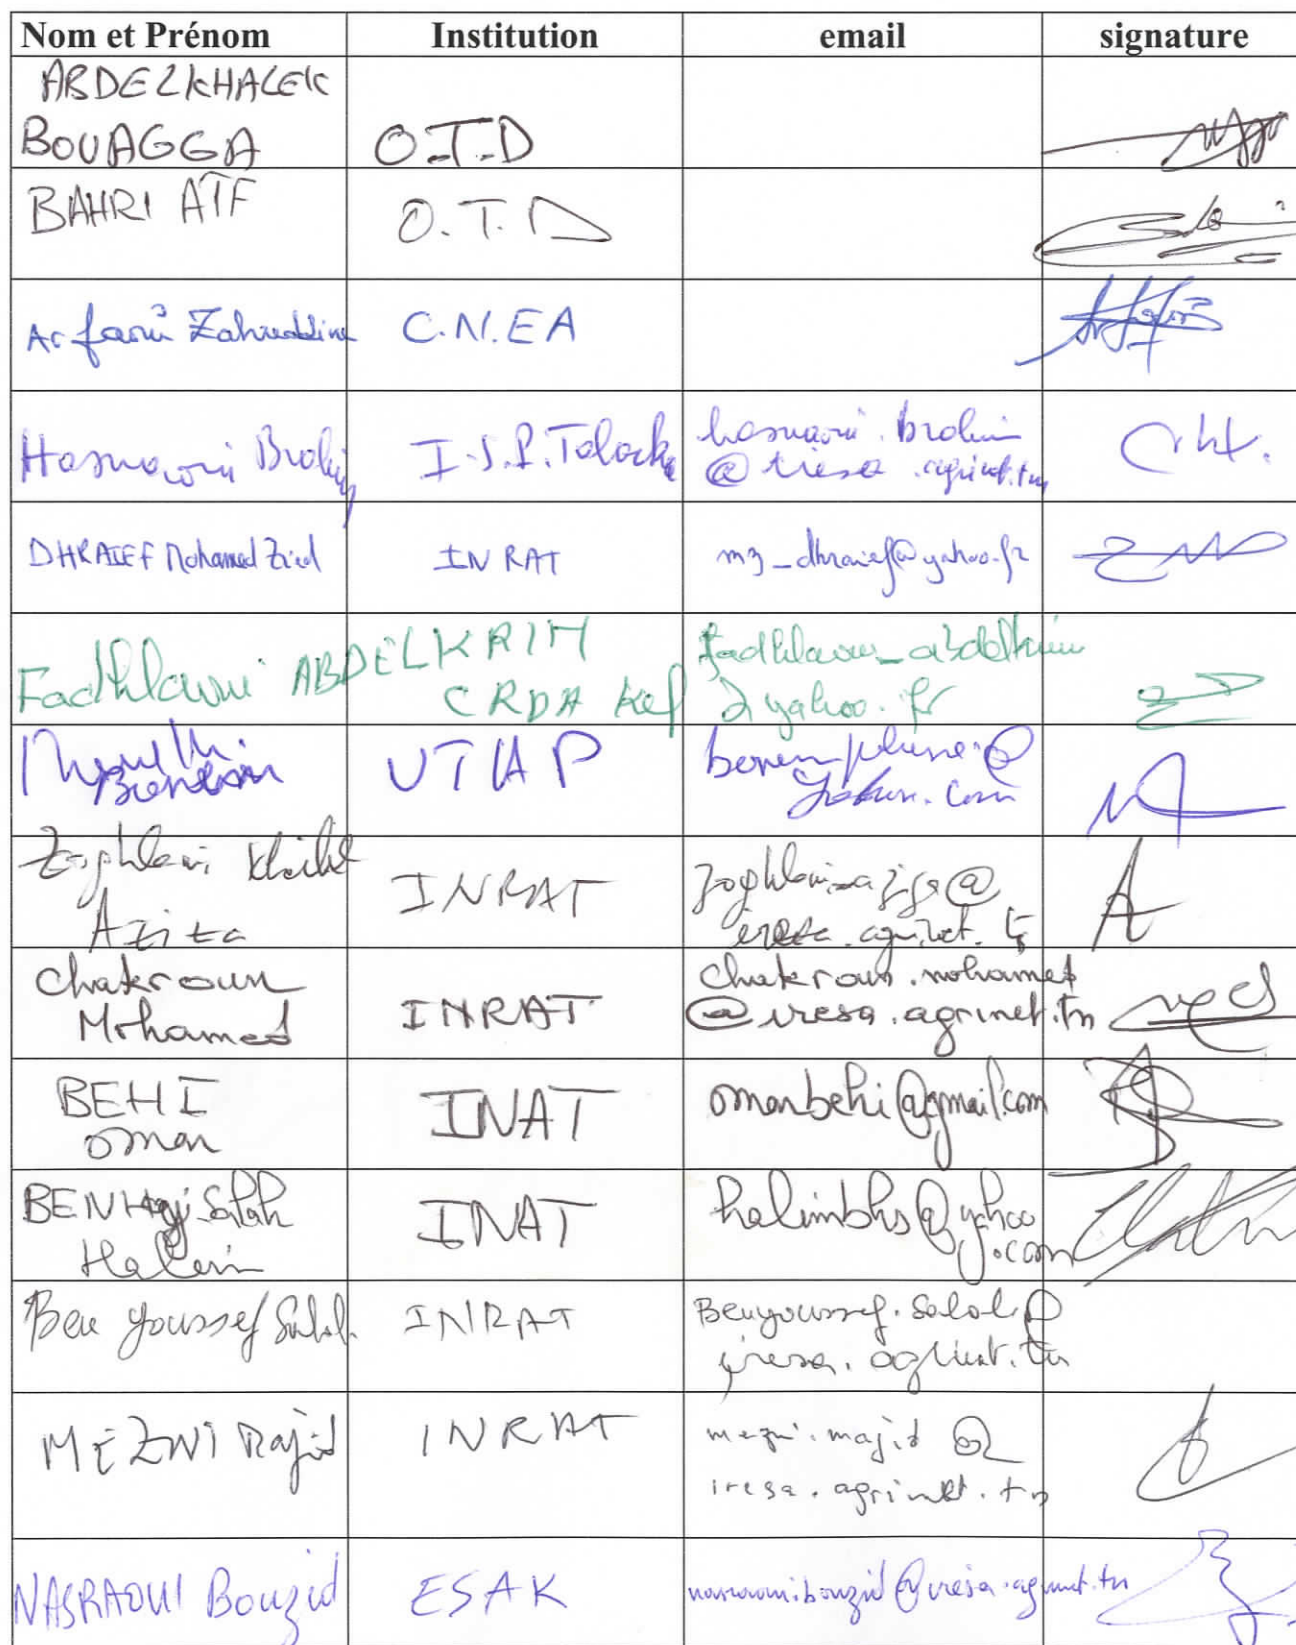 Nom et Prénom Institution email signature
ABDELKHALEK
BOUAGGA O.T.D
BAHRI ATF O.T.D
Arfaoui Zahreddine C.N.EA
Hasnaoui Brahim I.S.P. Tabarka hasnaoui.brahim
@iresa.agrinet.tn
DHRAIEF Mohamed Zied INRAT mz_dhraief@yahoo.fr
Fadhlaoui ABDELKRIM fadhlaoui_abdelkrim
CRDA Kef @yahoo.fr
UTAP
Zoghlami Khelil INRAT zoghlami.aziza@
Aziza iresa.agrinet.tn
Chakroun chakroun.mohamed
Mohamed INRAT @iresa.agrinet.tn
BEHI INAT omarbehi@gmail.com
omar
BEN Haj Salah INAT halimbhs@yahoo
Halim .com
Ben Youssef Salah INRAT Benyoussef.salah@
iresa.agrinet.tn
MEZNI Majid INRAT mezni.majid@
iresa.agrinet.tn
NASRAOUI Bouzid ESAK nasraoui.bouzid@iresa.agrinet.tn